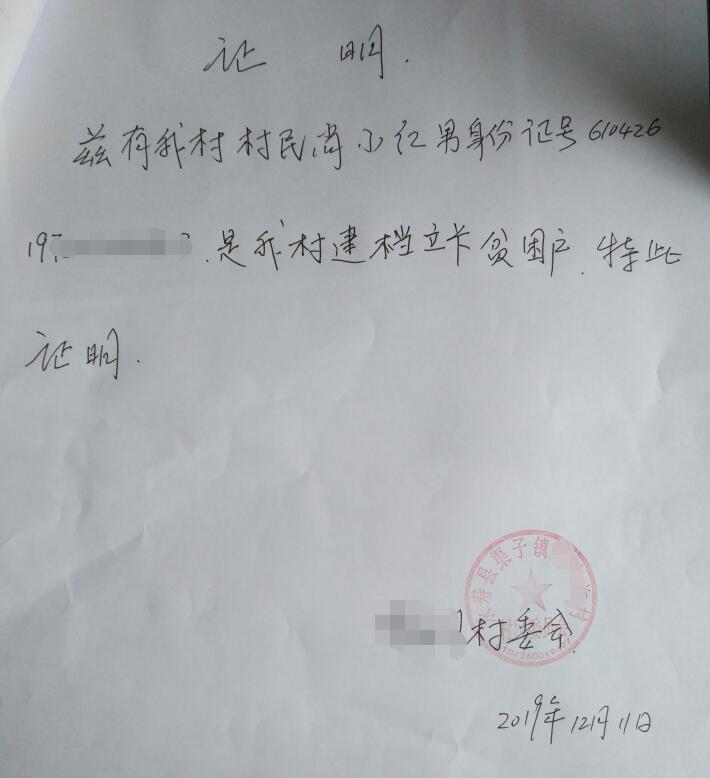 证 明.
兹有我村村民尚小红男身份证号610426
197
.是我村建档立卡贫困户.特此
证明.
永寿县渠子镇
村
村委会
2019年12月11日